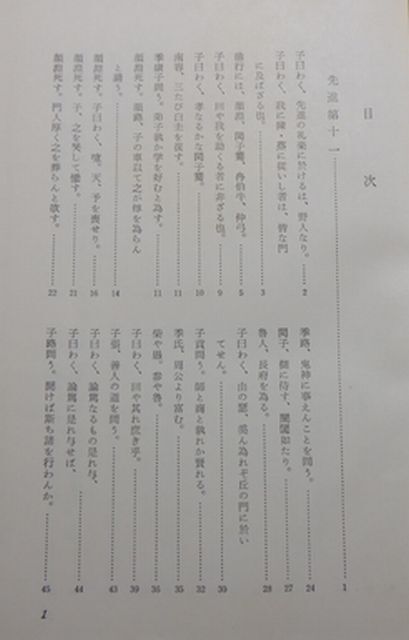 目次
先進第十一 1
子曰わく、先進の礼楽に於けるは、野人なり。 2
子曰わく、我に陳・蔡に従いし者は、皆な門
に及ばざる也。 3
徳行には、顔淵、閔子騫、冉伯牛、仲弓。 5
子曰わく、回や我を助くる者に非ざる也。 9
子曰わく、孝なるかな閔子騫。 10
南容、三たび白圭を復す。 11
季康子問う。弟子孰か学を好むと為す。 11
顔淵死す。顔路、子の車以て之が椁を為らん
と請う。 14
顔淵死す。子曰わく、噫。天、予を喪せり。 16
顔淵死す。子、之を哭して慟す。 21
顔淵死す。門人厚く之を葬らんと欲す。 22
季路、鬼神に事えんことを問う。 24
閔子、側に侍す、誾誾如たり。 27
魯人、長府を為る。 28
子曰わく、由の瑟、奚ん為れぞ丘の門に於い
てせん。 30
子貢問う。師と商と孰れか賢れる。 32
季氏、周公より富む。 35
柴や愚。参や魯。 36
子曰わく、回や其れ庶き乎。 39
子張、善人の道を問う。 43
子曰わく、論篤なるもの是れ与、
子曰わく、論篤に是れ与せば、 44
子路問う。聞けば斯ち諸を行わんか。 45
1